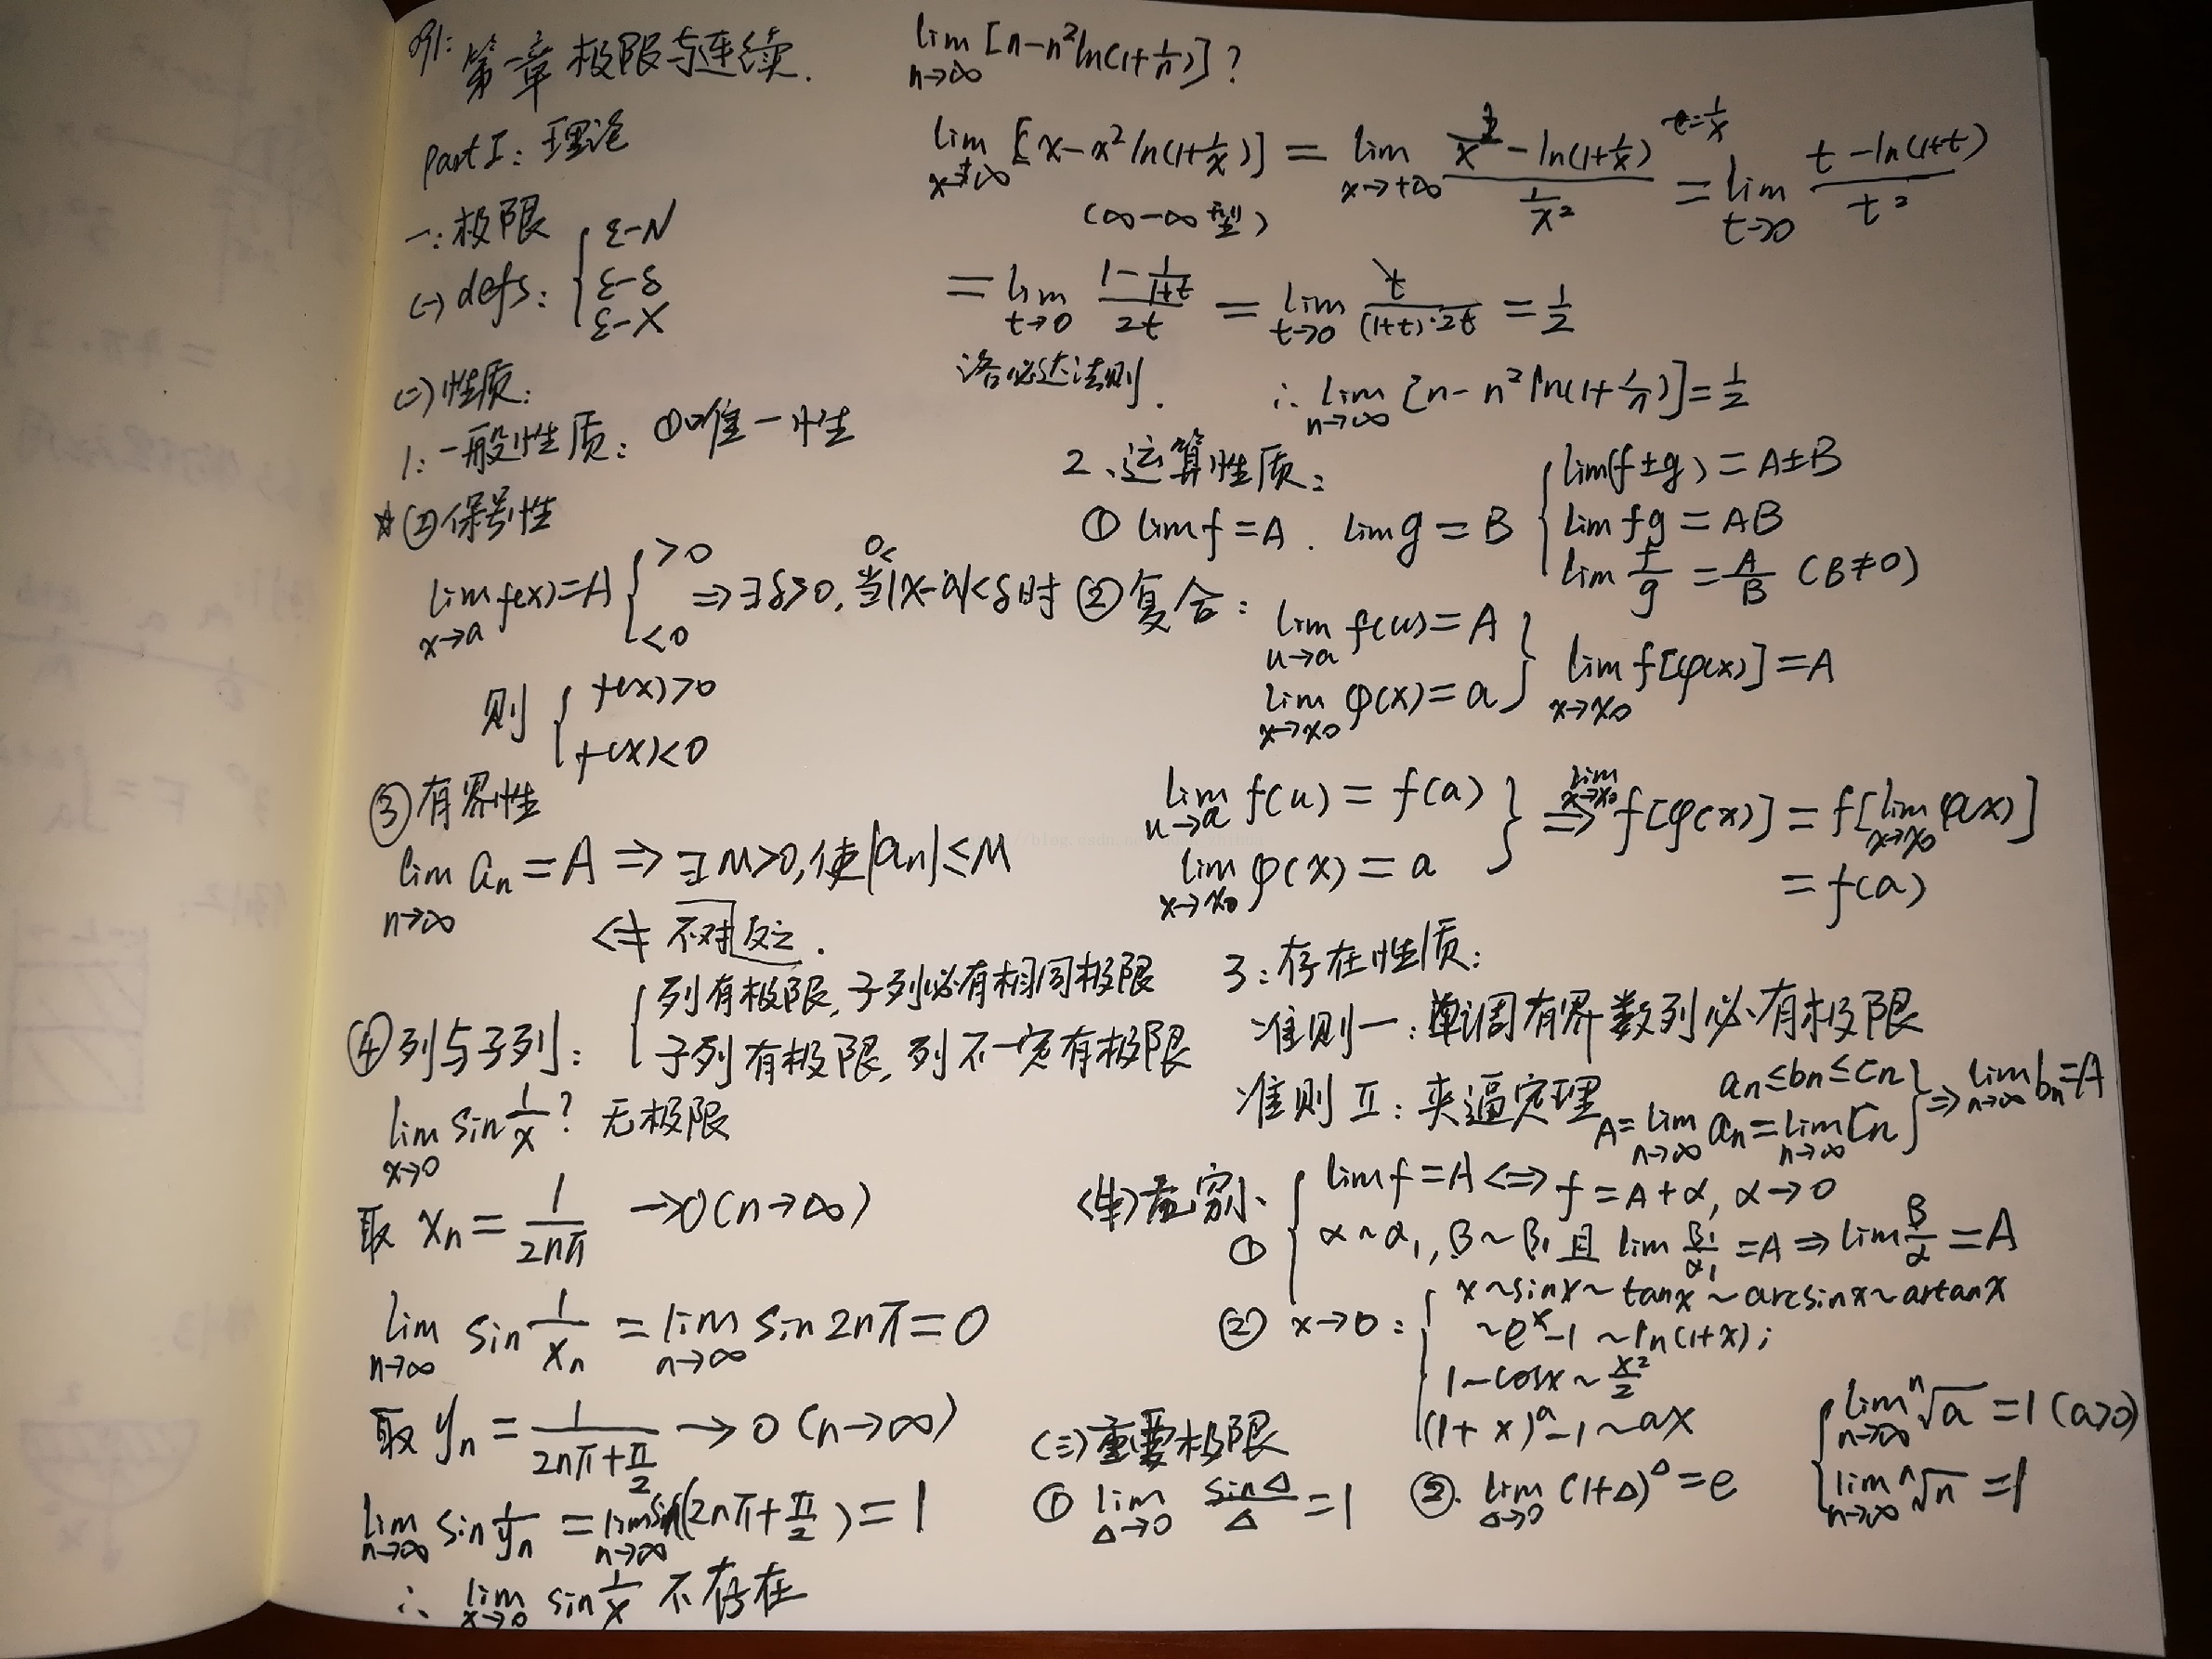 例1:
第一章 极限与连续.
Part I: 理论
一:极限
(一) defs: { ε-N
ε-δ
ε-X
(二)性质:
1:一般性质: ①唯一性
☆②保号性
lim x→a f(x)=A { >0 <0 ⇒∃δ>0, 当0<|x-a|<δ时
则 { f(x)>0
f(x)<0
③有界性
lim n→∞ an = A ⇒ ∃M>0, 使|an|≤M
⇍ 不对反之.
④列与子列: { 列有极限, 子列必有相同极限
子列有极限, 列不一定有极限
lim x→0 sin 1/x ? 无极限
取 xn = 1/2nπ →0(n→∞)
lim n→∞ sin 1/xn = lim n→∞ sin 2nπ = 0
取 yn = 1/(2nπ+π/2) → 0 (n→∞)
lim n→∞ sin 1/yn = lim n→∞ sin(2nπ+π/2) = 1
∴ lim x→0 sin 1/x 不存在
lim n→∞ [n-n²ln(1+1/n)]?
lim x→+∞ [x-x²ln(1+1/x)] = lim x→+∞ (1/x - ln(1+1/x))/(1/x²) t=1/x = lim t→0 (t-ln(1+t))/t²
(∞-∞型)
= lim t→0 (1-1/(1+t))/2t = lim t→0 t/((1+t)·2t) = 1/2
洛必达法则.
∴ lim n→∞ [n-n²ln(1+1/n)] = 1/2
2、运算性质:
① lim f = A. lim g = B { lim(f±g) = A±B
lim fg = AB
lim f/g = A/B (B≠0)
②复合: lim u→a f(u) = A
lim x→x0 φ(x) = a } lim x→x0 f[φ(x)] = A
lim u→a f(u) = f(a)
lim x→x0 φ(x) = a } ⇒ lim x→x0 f[φ(x)] = f[lim x→x0 φ(x)]
= f(a)
3:存在性质:
准则一:单调有界数列必有极限
准则Ⅱ:夹逼定理 an≤bn≤cn
A = lim n→∞ an = lim n→∞ cn } ⇒ lim n→∞ bn = A
无穷小、
① { lim f = A ⇔ f = A+α, α→0
α~α1, β~β1 且 lim β1/α1 = A ⇒ lim β/α = A
② x→0: { x~sinx~tanx~arcsinx~artanx
~e^x-1~ln(1+x);
1-cosx~x²/2
(1+x)^a-1~ax
(三)重要极限
① lim Δ→0 sinΔ/Δ = 1 ②. lim Δ→0 (1+Δ)^Δ = e
{ lim n→∞ ⁿ√a = 1 (a>0)
lim n→∞ ⁿ√n = 1